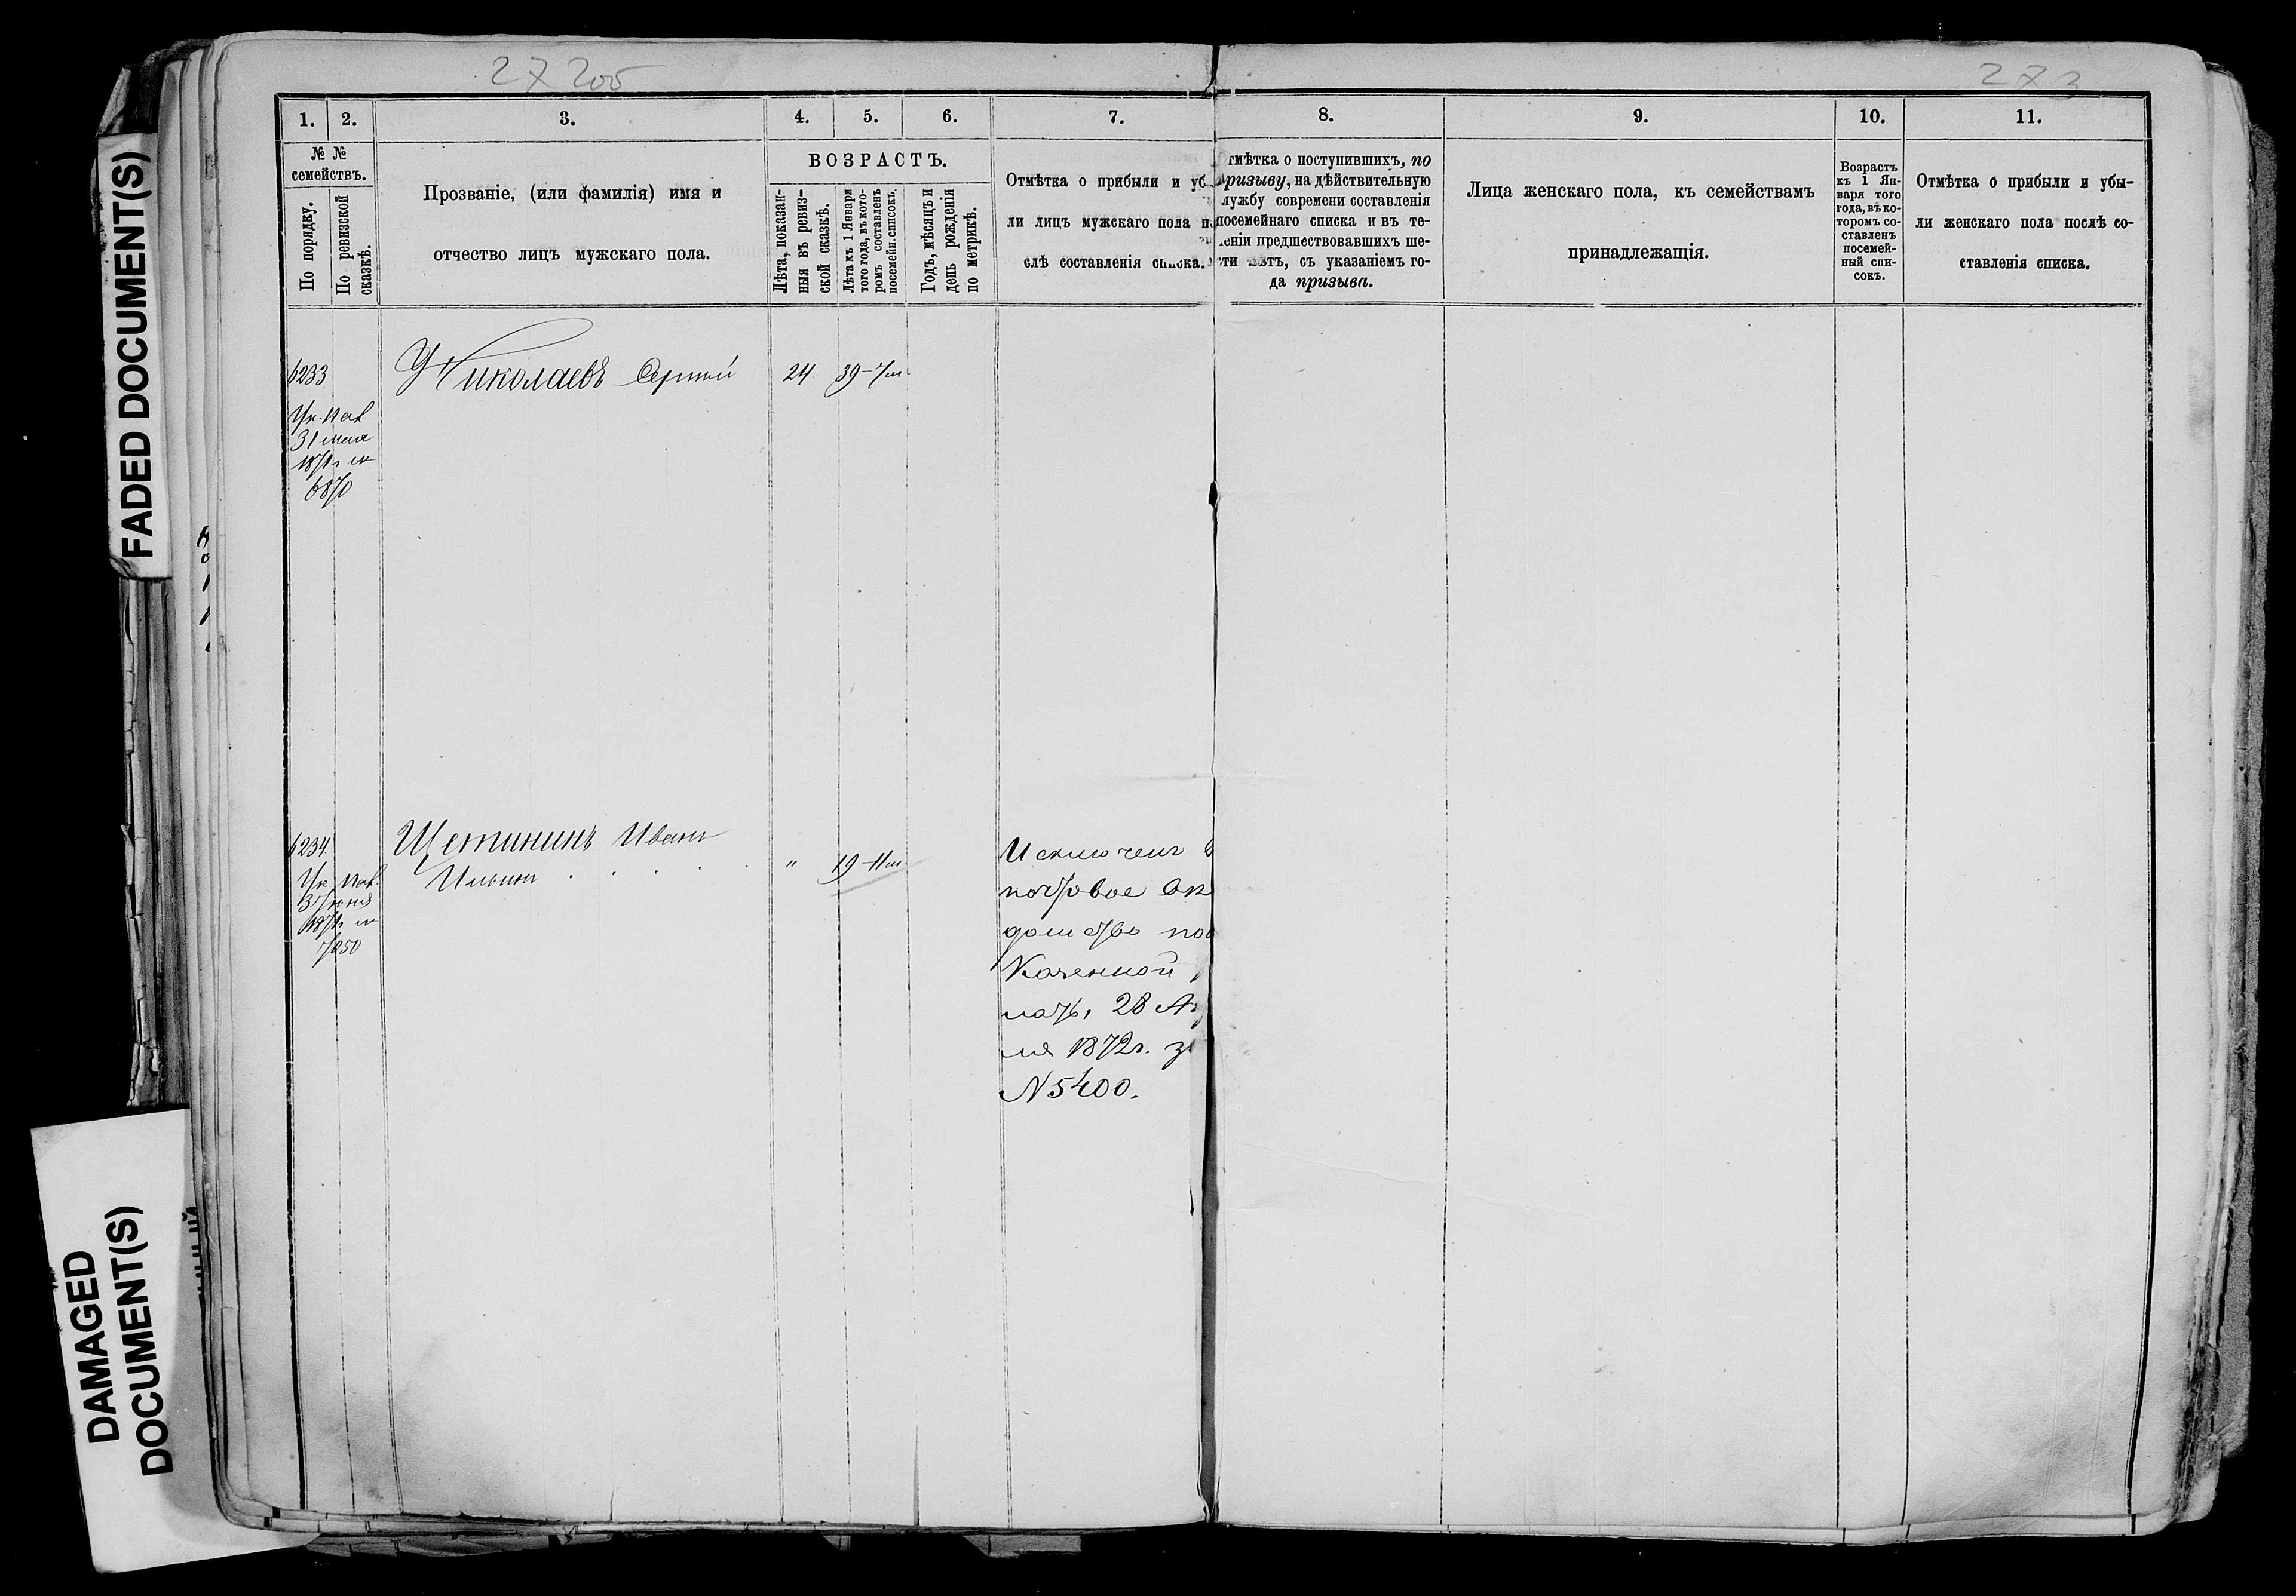 27 205
273
1.
2.
3.
4.
5.
6.
7.
8.
9.
10.
11.
№ №
семействъ.
По порядку.
По ревизской
сказкѣ.
Прозваніе, (или фамилія) имя и
отчество лицъ мужскаго пола.
ВОЗРАСТЪ.
Лѣта, показан-
ныя въ ревиз-
ской сказкѣ.
Лѣта къ 1 Января
того года, въ кото-
ромъ составленъ
посемейн. списокъ.
Годъ, мѣсяцъ и
день рожденія
по метрикѣ.
Отмѣтка о прибыли и уб
ли лицъ мужскаго пола п
слѣ составленія списка.
тмѣтка о поступившихъ, по
призыву, на дѣйствительную
лужбу современи составленія
посемейнаго списка и въ те-
ченіи предшествовавшихъ ше-
сти лѣтъ, съ указаніемъ го-
да призыва.
Лица женскаго пола, къ семействамъ
принадлежащія.
Возрастъ
къ 1 Ян-
варя того
года, въ ко-
торомъ со-
ставленъ
посемей-
ный спи-
сокъ.
Отмѣтка о прибыли и убы-
ли женскаго пола послѣ со-
ставленія списка.
6233
Николаевъ Сергѣй 24 39-7м
Ук. Пал.
31 мая
1871г за
6870
6234
Щетининъ Иванъ
Ильинъ . . . . " 19-11м
Ук. Пал.
3 іюня
1871г за
7250
Исключенъ в
почтовое вѣ
домство
Казенной
латы, 28 Ап
ля 1872г. за
N 5400.
FADED DOCUMENT(S)
DAMAGED
DOCUMENT(S)